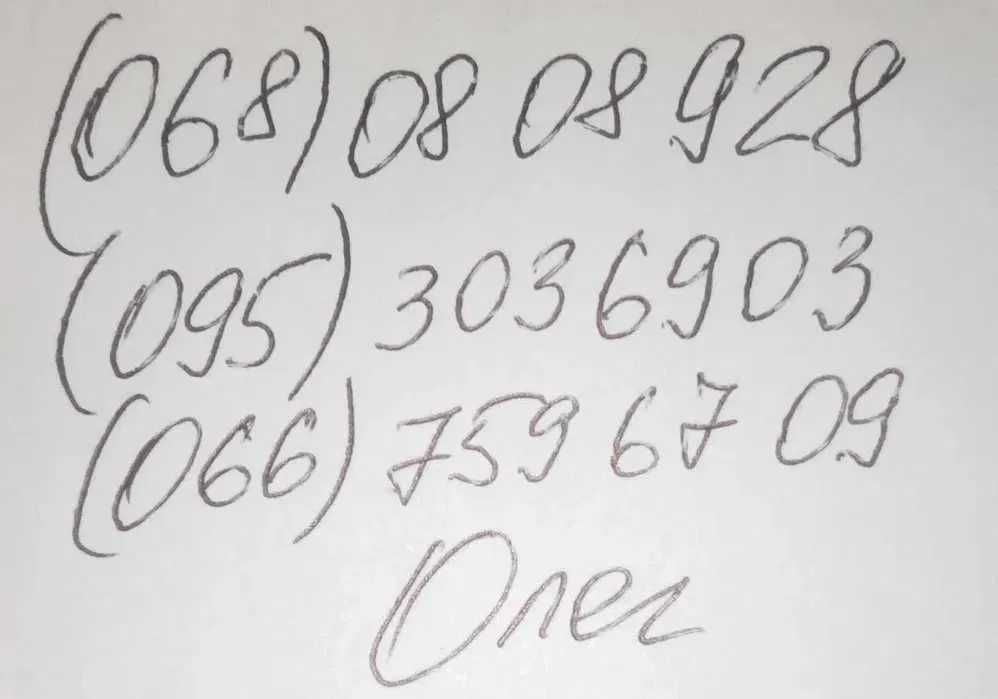 (068) 08 08 928
(095) 3036903
(066) 759 67 09
Олег